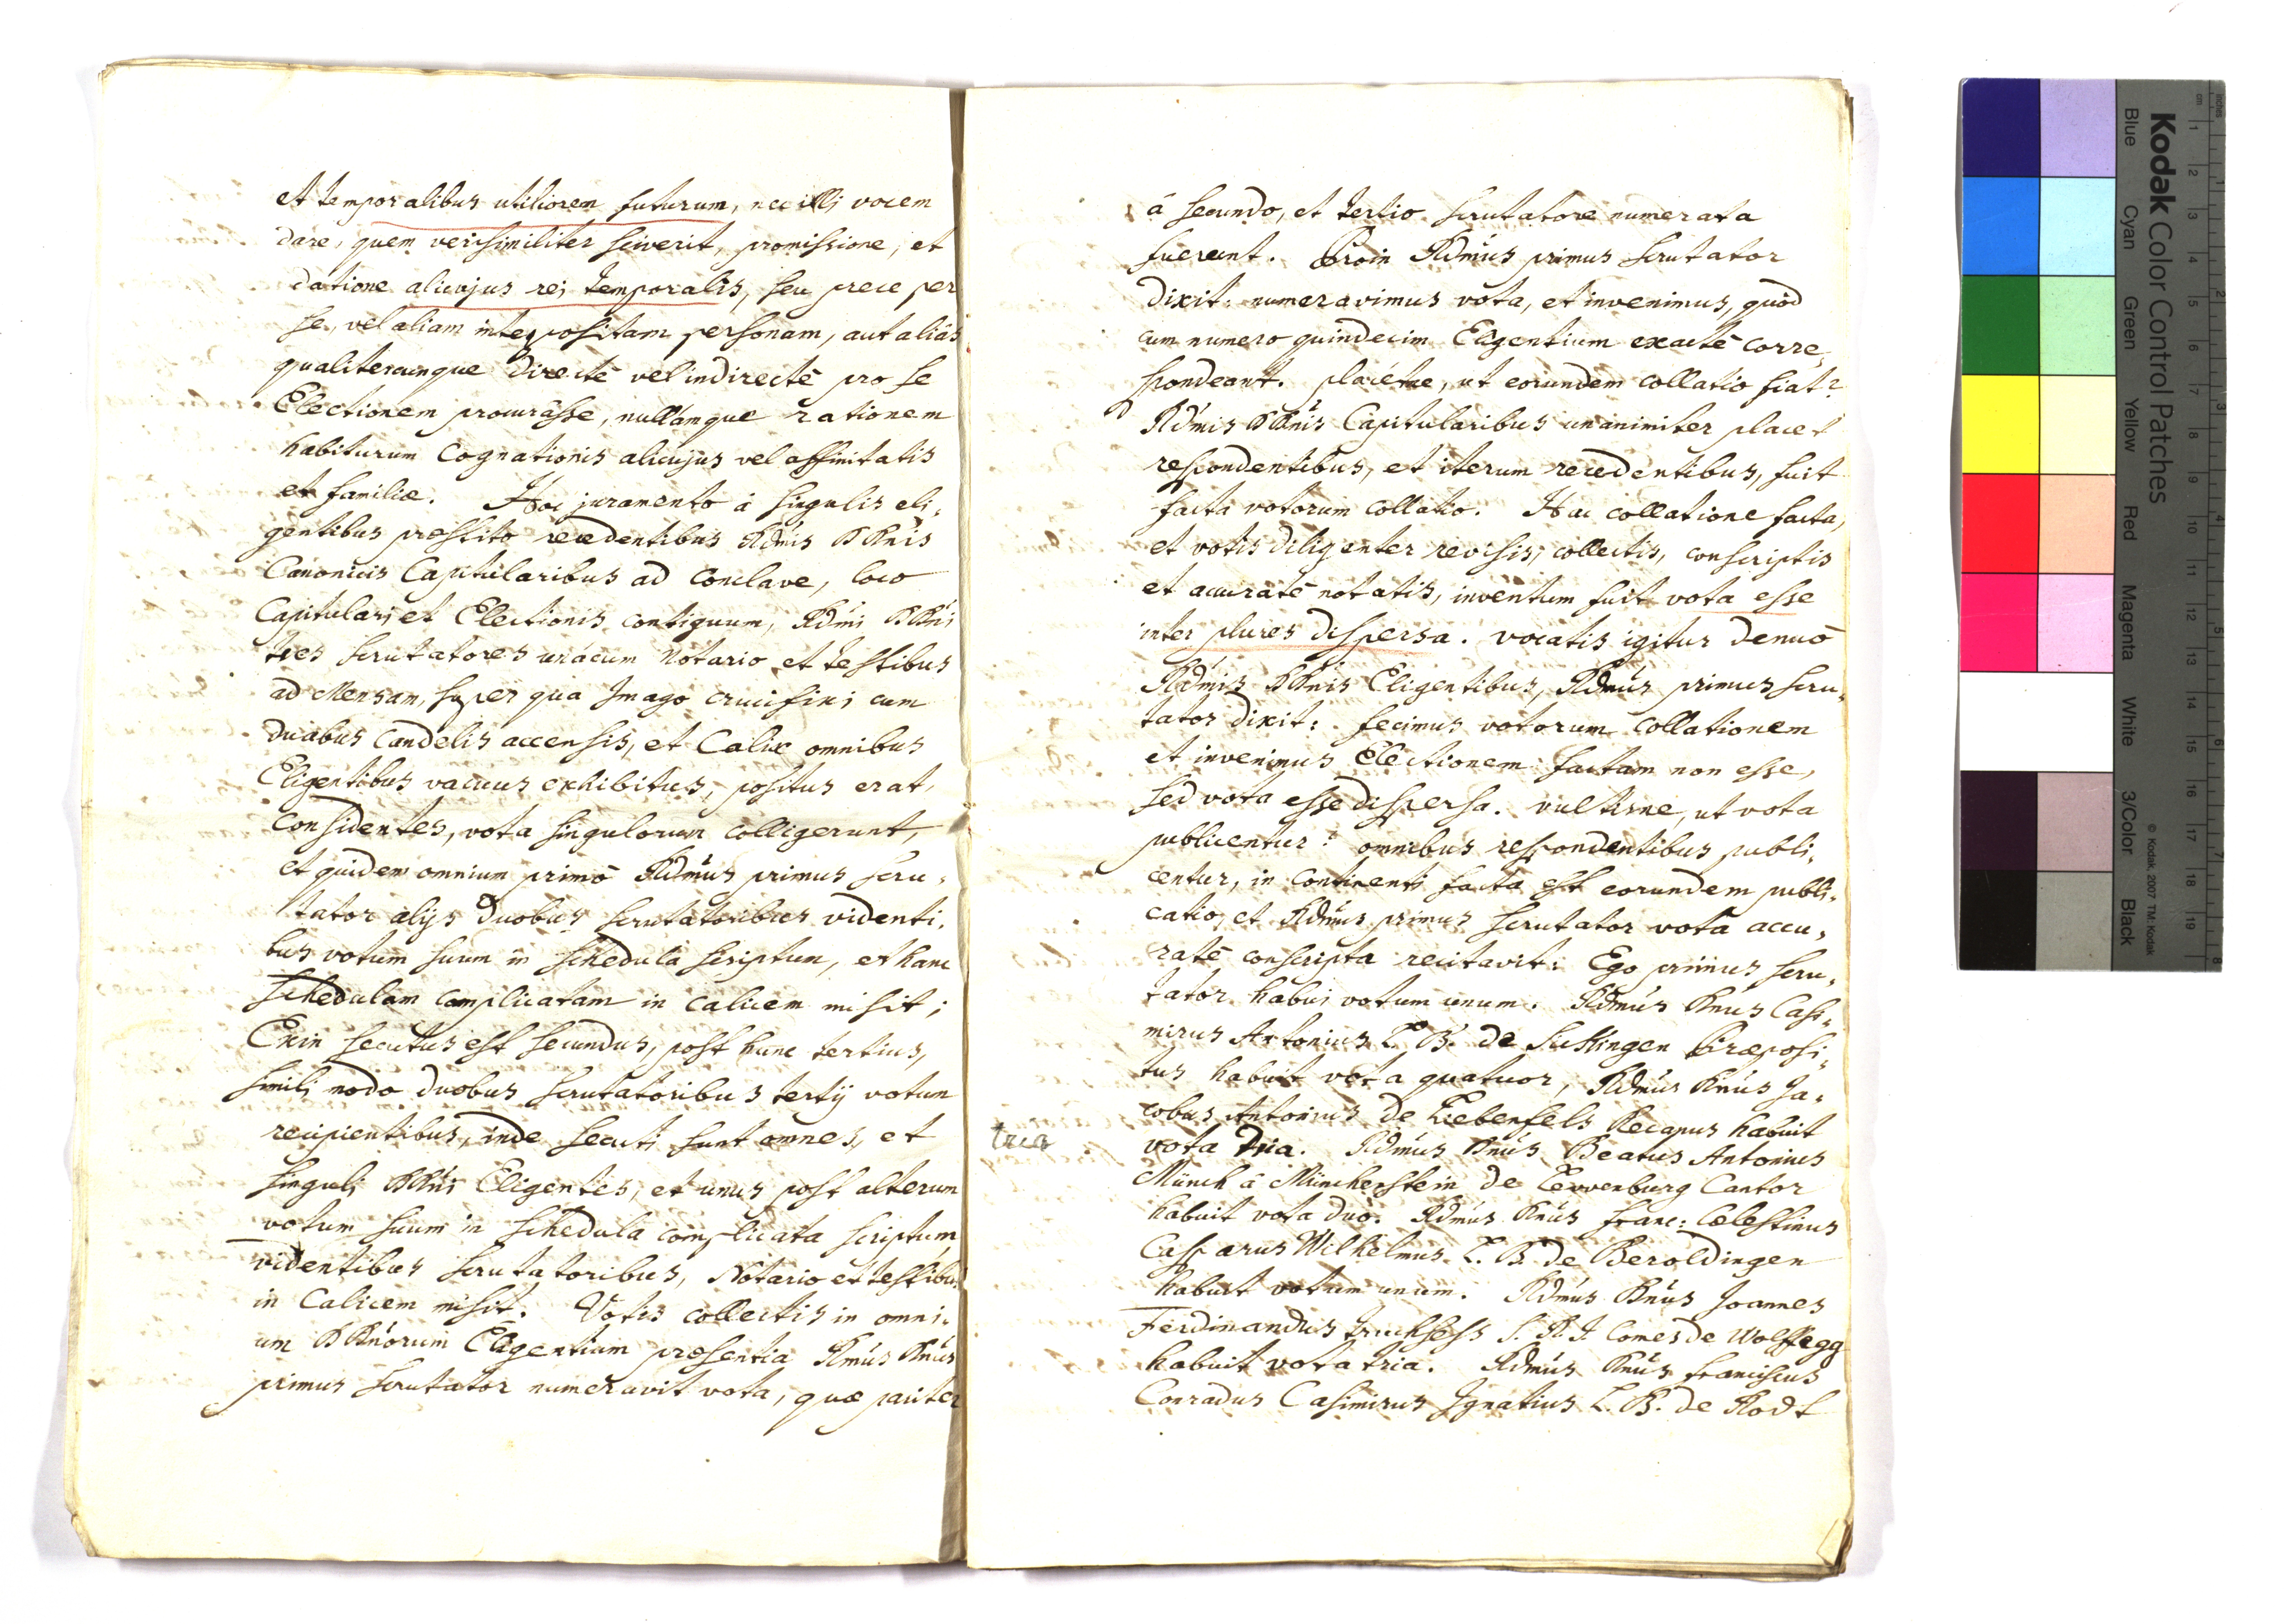 et temporalibus utiliorem futurum, nec illi vocem
dare, quem verisimiliter sciverit, promissione, et
datione alicujus rei temporalis, seu prece per
se, vel aliam interpositam personam, aut aliàs
qualitercunque directè vel indirectè pro se
Electionem procurâsse, nullámque rationem
habiturum Cognationis alicujus vel affinitatis
et familiæ. Hoc juramento à singulis eli,
gentibus præstito recedentibus Rdmis DDnis
Canonicis Capitularibus ad Conclave, loco
Capitulari et Electionis contiguum, Rdmi DDni
tres scrutatores unàcum Notario et testibus
ad Mensam, super qua Imago crucifixi cum
duabus Candelis accensis, et Calix omnibus
Eligentibus vacuus exhibitus, positus erat,
considentes, vota singulorum colligerunt,
et quidem omnium primò Rdmus primus scru,
tator alijs duobus scrutatoribus videnti,
bus votum suum in schedula scriptum, et hanc
schedulam complicatam in calicem misit;
Exin secutus est secundus, post hunc tertius,
simili modo duobus scrutatoribus tertij votum
recipientibus, inde secuti sunt omnes, et
singuli DDni Eligentes, et unus post alterum
votum suum in schedula complicata scriptum
videntibus scrutatoribus, Notario et testibus
in Calicem misit. Votis collectis in omni,
um DDnorum Eligentium præsentia Rmus Dnus
primus scrutator numeravit vota, quæ pariter
à secundo, et tertio scrutatore numerata
fuerunt. Proin Rdmus primus scrutator
dixit: numeravimus vota, et invenimus, quòd
cum numero quindecim Eligentium exactè corre,
spondeant. placétne, ut eorundem collatio fiat?
Rdmis DDnis Capitularibus unanimiter placet
respondentibus, et iterum recedentibus, fuit
facta votorum collatio. Hac collatione facta,
et votis diligenter revisis, collectis, conscriptis
et accuratè notatis, inventum fuit vota esse
inter plures dispersa. vocatis igitur denuò
Rdmis DDnis Eligentibus, Rdmus primus scru,
tator dixit: fecimus votorum collationem
et invenimus Electionem factam non esse,
sed vota esse dispersa. vultisne, ut vota
publicentur? omnibus respondentibus publi,
centur, in continenti facta est eorundem publi,
catio, et Rdmus primus scrutator vota accu,
ratè conscripta recitavit: Ego primus scru,
tator habui votum unum. Rdmus Dnus Casi,
mirus Antonius L. B. de Sickingen Præposi,
tus habuit vota quatuor, Rdmus Dnus Ja,
cobus Antonius de Liebenfels Decanus habuit
tria
vota tria. Rdmus Dnus Beatus Antonius
Münch à Münchenstein de Lewenburg Cantor
habuit vota duo. Rdmus Dnus Franc: Cælestinus
Casparus Wilhelmus L. B. de Beroldingen
habuit votum unum. Rdmus Dnus Joannes
Ferdinandus truchsess S. R. I. Comes de Wolffegg
habuit vota tria. Rdmus Dnus franciscus
Conradus Casimirus Ignatius L. B. de Rodt
Kodak Color Control Patches
Blue Cyan Green Yellow Red Magenta White 3/Color Black
© Kodak, 2007 TM: Kodak
cm 1 2 3 4 5 6 7 8 9 10 11 12 13 14 15 16 17 18 19
inches 1 2 3 4 5 6 7 8